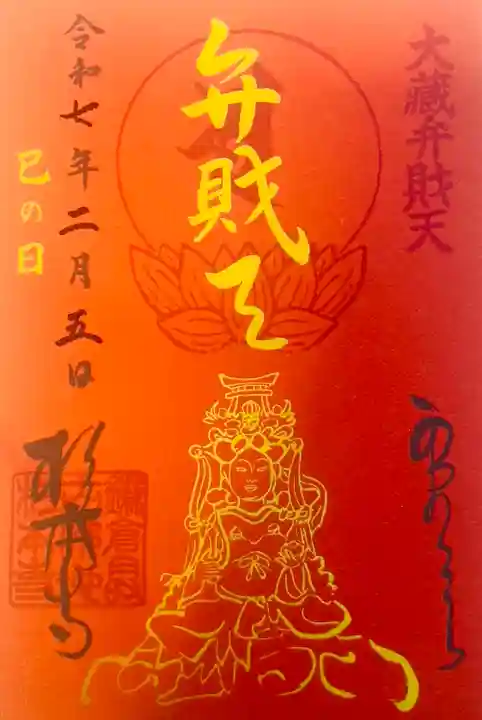 大藏弁財天
弁財天
令和七年二月五日
巳の日
杉本寺